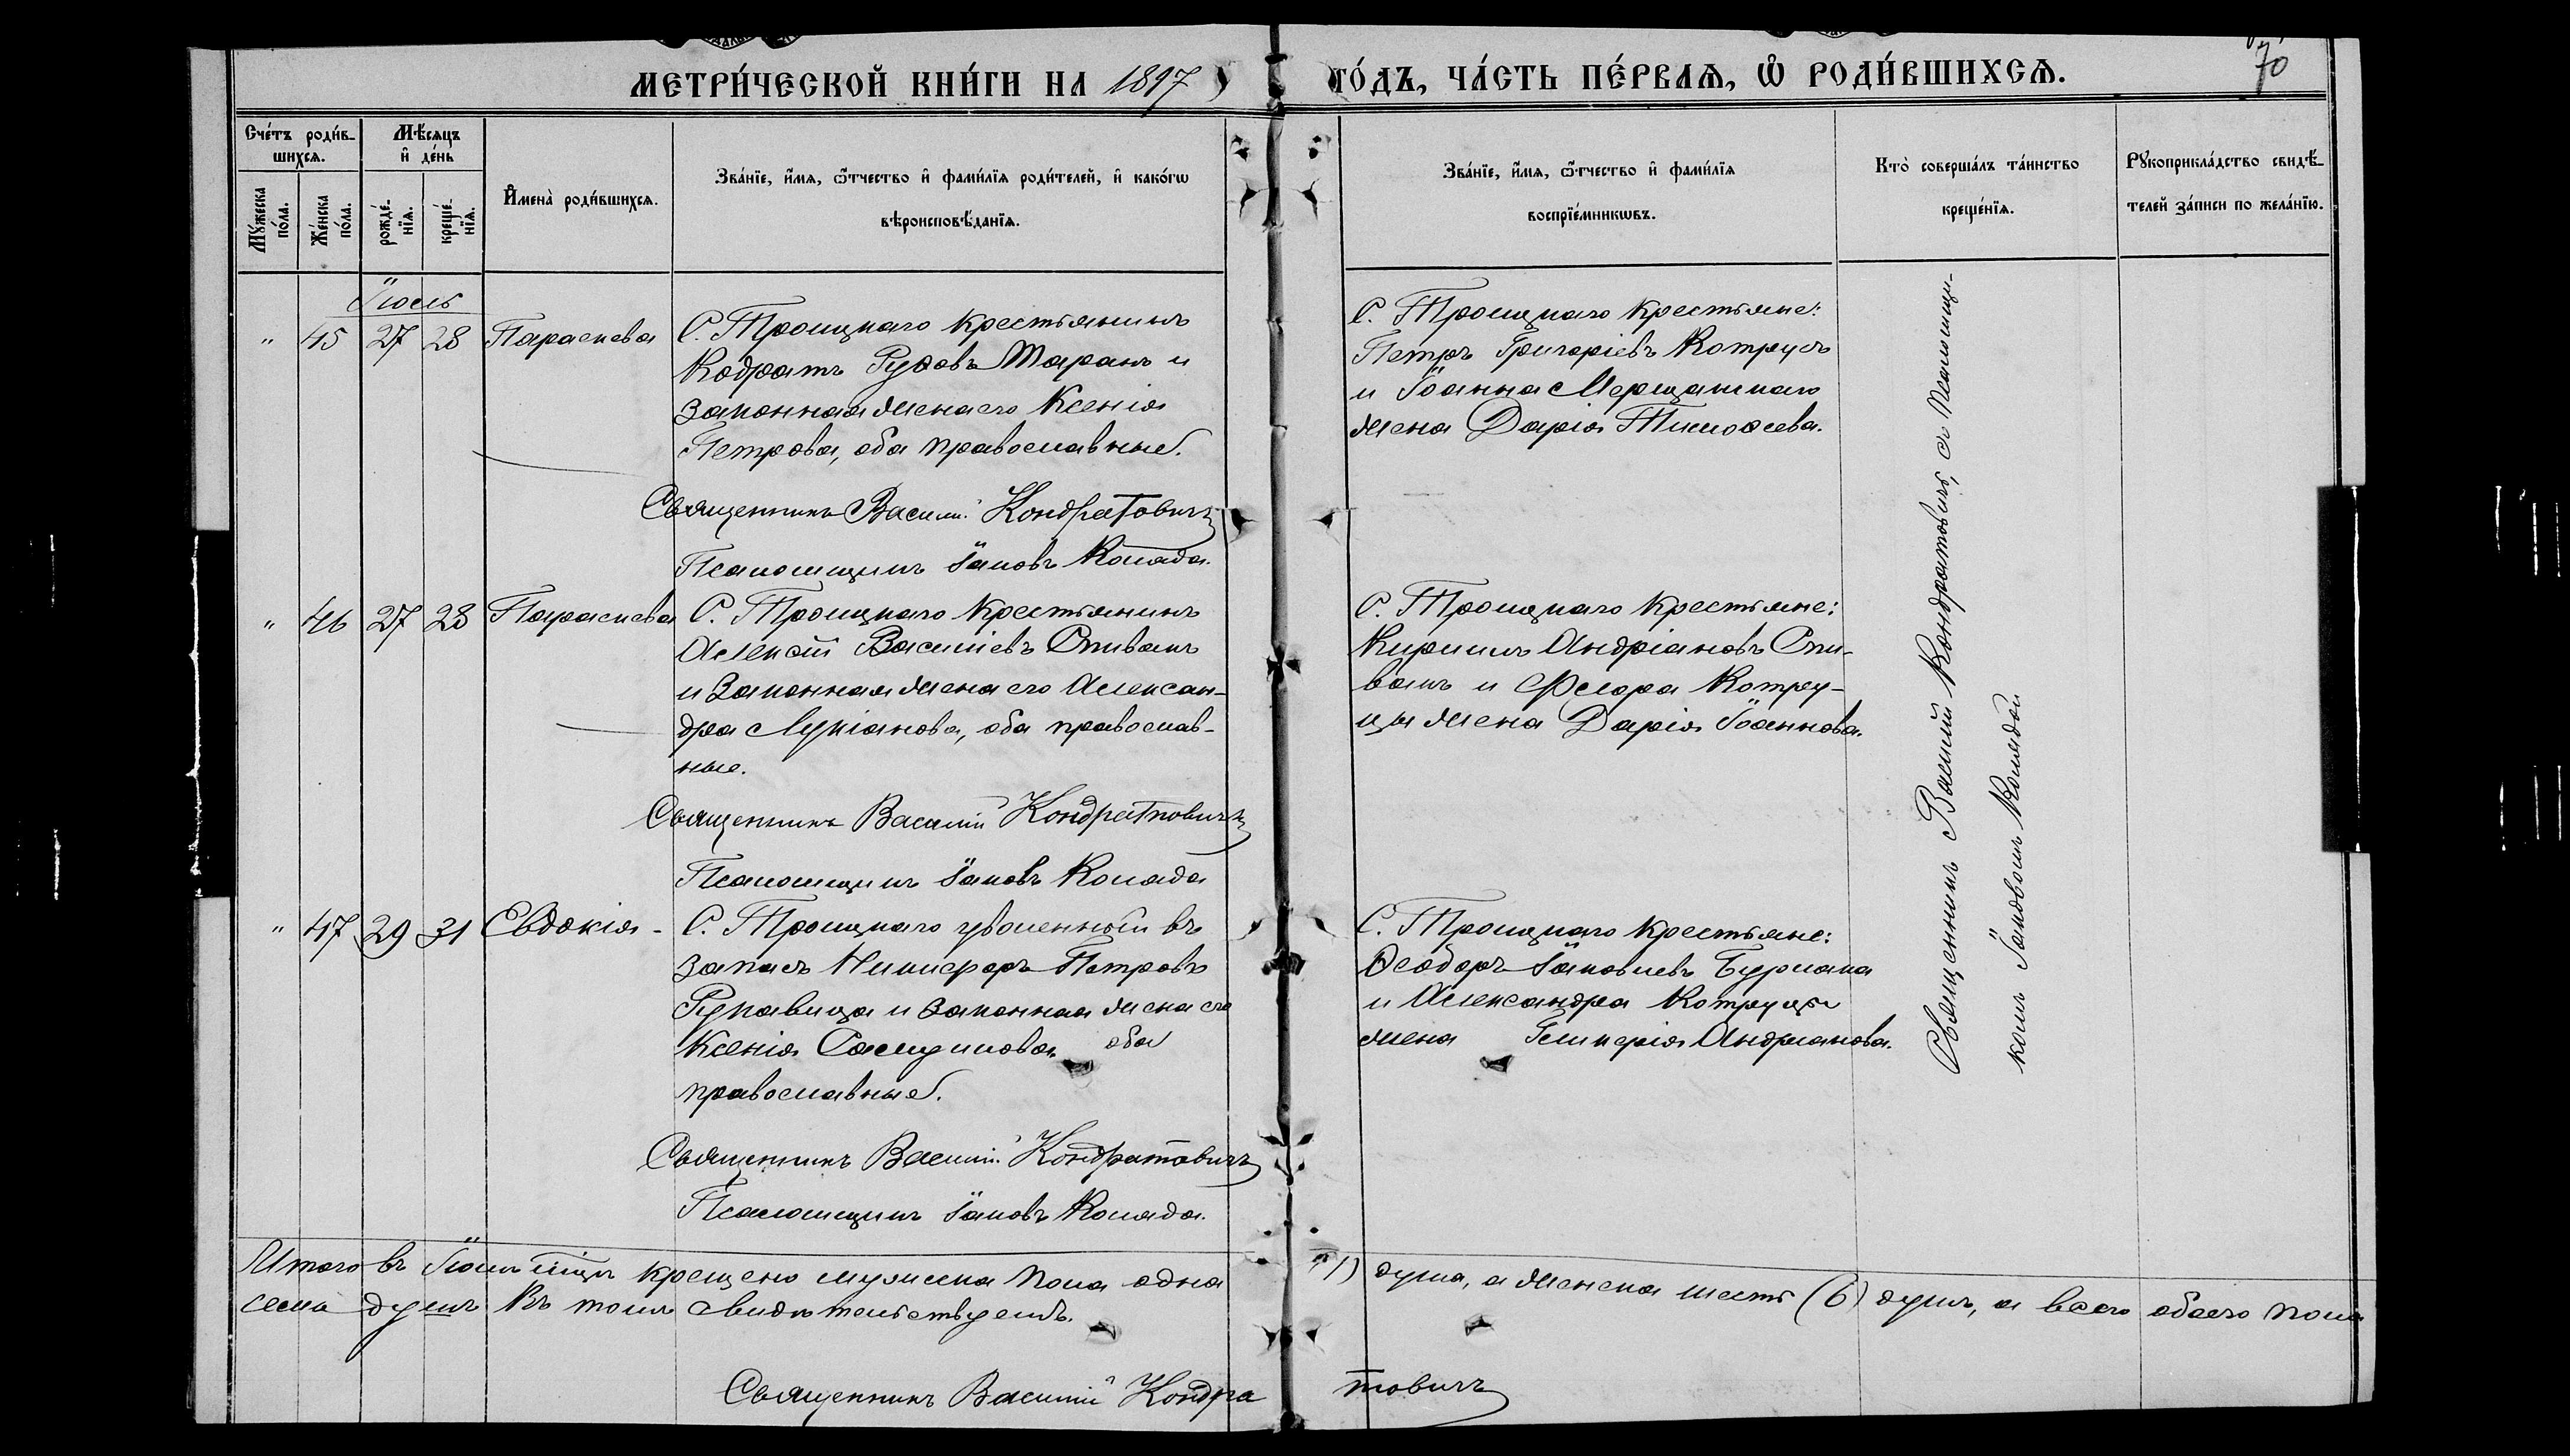 МЕТРИ́ЧЕСКОЙ КНИ́ГИ НА 1897
ГО́ДЪ, ЧА́СТЬ ПЕ́РВАѦ, Ѽ РОДИ́ВШИХСѦ.
70
Сче́тъ роди́в-
шихсѧ.
Мꙋ́жеска
по́ла.
Же́нска
по́ла.
Мѣ́сѧцъ
и҆ де́нь
рожде́-
нїѧ.
креще́-
нїѧ.
И҆мена̀ роди́вшихсѧ.
Зва́нїе, и҆́мѧ, ѻ҆́тчество и҆ фами́лїѧ роди́телей, и҆ како́гѡ
вѣроисповѣ́данїѧ.
Зва́нїе, и҆́мѧ, ѻ҆́тчество и҆ фами́лїѧ
воспрїе́мникѡвъ.
Кто̀ соверша́лъ та́инство
креще́нїѧ.
Рꙋкоприкла́дство свидѣ́-
телей за́писи по жела́нїю.
Іюль
" 45 27 28 Параскева
С. Троицкаго крестьянинъ
Кодратъ Руфовъ Таранъ и
законная жена его Ксенія
Петрова, оба православные.
Священникъ Василій Кондратовичъ
Псаломщикъ Іаковъ Коляда.
С. Троицкаго крестьяне:
Петръ Григоріевъ Котруцъ
и Іоанна Мерщанскаго
жена Дарія Тимоѳеева.
" 46 27 28 Параскева
С. Троицкаго крестьянинъ
Алексій Василіевъ Спивакъ
и законная жена его Алексан-
дра Лукіанова, оба православ-
ные.
Священникъ Василій Кондратовичъ
Псаломщикъ Іаковъ Коляда
С. Троицкаго крестьяне:
Кириллъ Андріановъ Спи-
вакъ и Флора Котру-
ца жена Дарія Іоаннова.
" 47 29 31 Евдокія -
С. Троицкаго уволенный въ
запасъ Никифоръ Петровъ
Рукавица и законная жена его
Ксенія Самуилова, оба
православные.
Священникъ Василій Кондратовичъ
Псаломщикъ Іаковъ Коляда.
С. Троицкаго крестьяне:
Ѳеодоръ Іаковлевъ Бурлака
и Александра Котруца
жена Гликерія Андріанова.
Священникъ Василій Кондратовичъ, съ Псаломщи-
комъ Іаковомъ Колядой
Итого въ Іюлѣ мѣсяцѣ крещено мужеска пола одна (1) душа, а женска шесть (6) душъ, а всего обоего пола
семь душъ въ томъ свидѣтельствуемъ.
Священникъ Василій Кондратовичъ